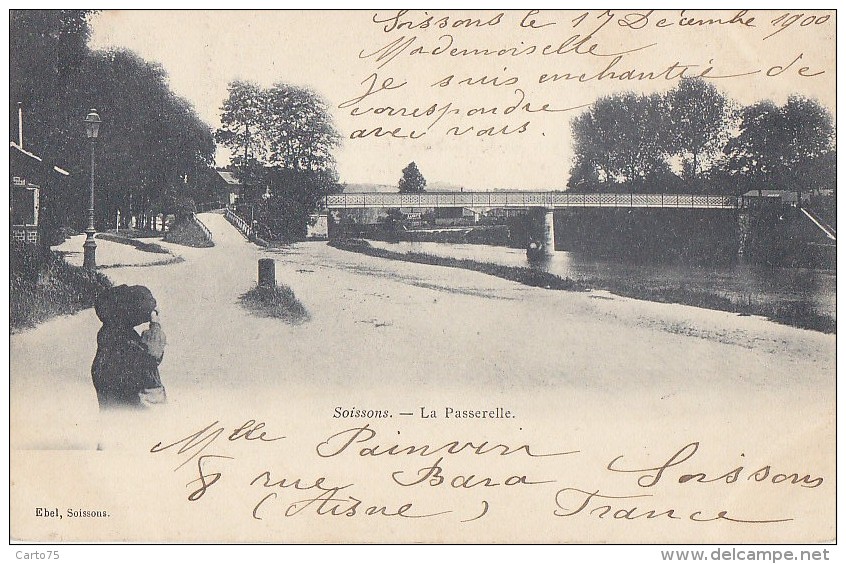 Soissons le 17 Décembre 1900
Mademoiselle
Je suis enchantée de
correspondre
avec vous.
Soissons. — La Passerelle.
Mlle Painvin
8 rue Bara Soissons
(Aisne) France
Ebel, Soissons.
Carto75
www.delcampe.net